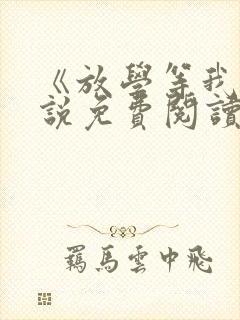 《放學等我
說免費閱讀
羈馬雲中飛